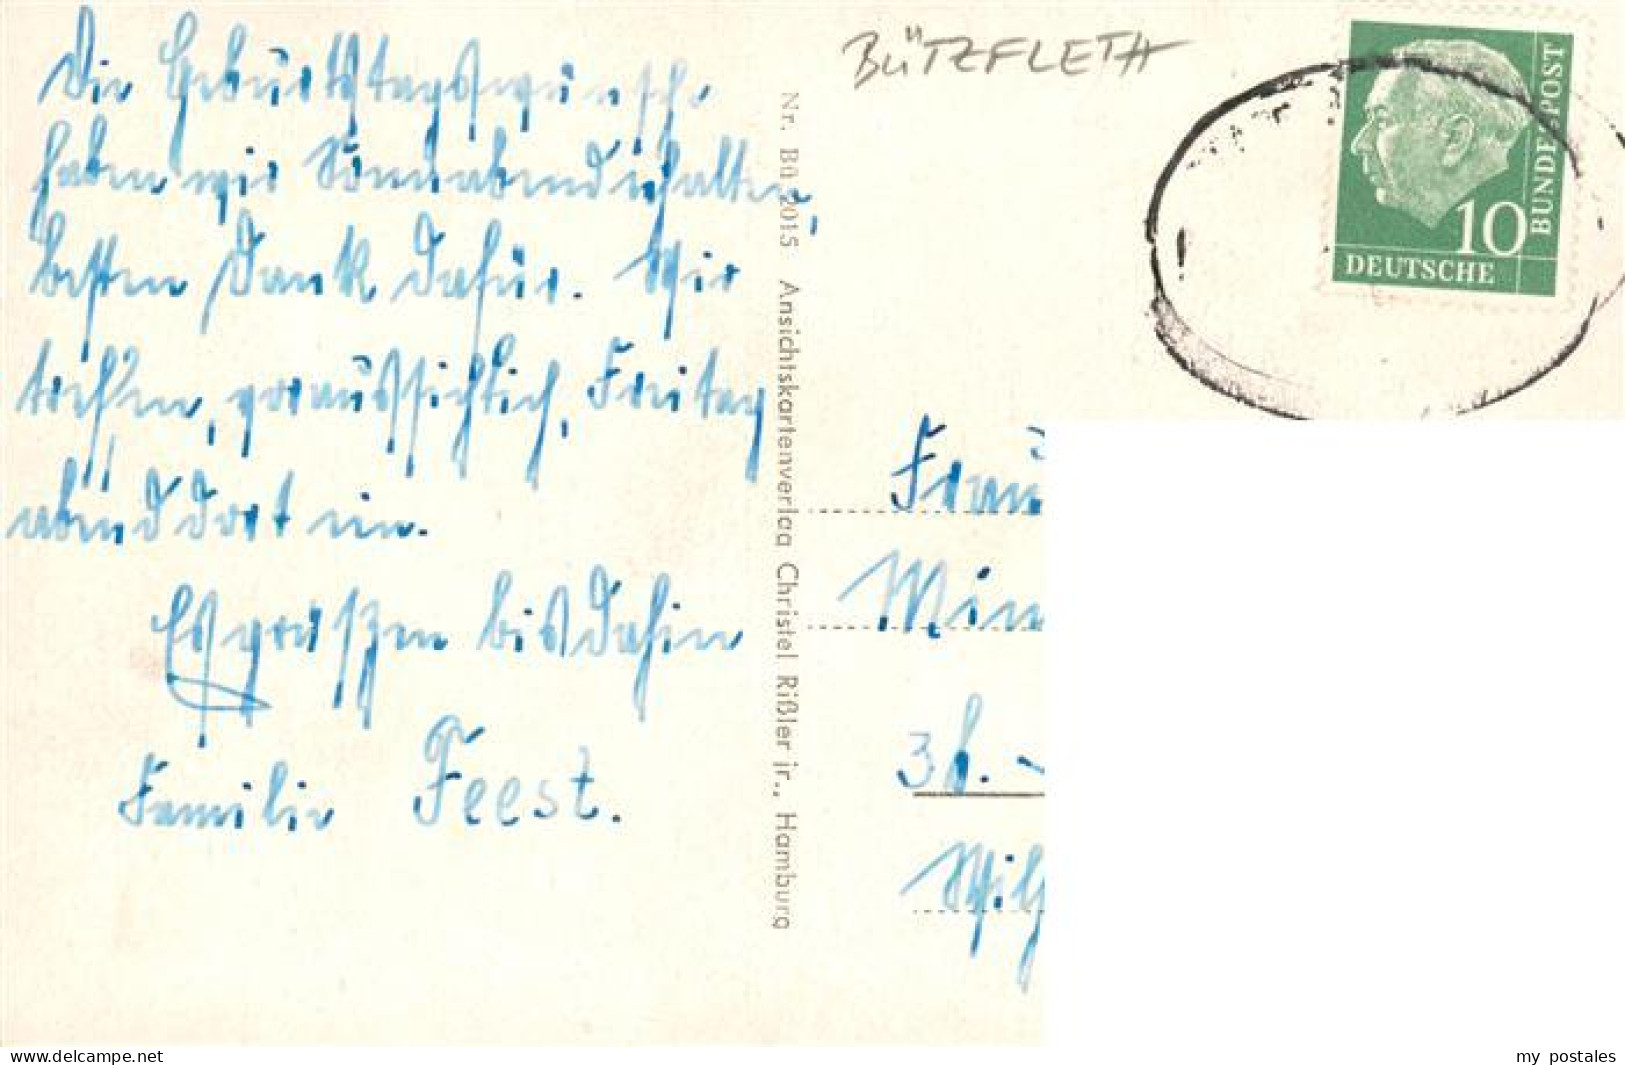 Die Geburtstagswünsche
haben wir Sonnabend erhalten,
besten Dank dafür. Wir
treffen, voraussichtlich, Freitag
abend dort ein.
Es grüßen bis dahin
Familie Feest.
Nr. Bü 2015 Ansichtskartenverlag Christel Rißler jr., Hamburg
BÜTZFLETH
DEUTSCHE
BUNDESPOST
10
Frau
www.delcampe.net
my postales